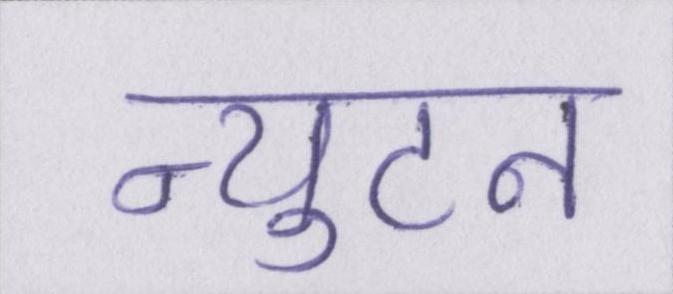 न्युटन